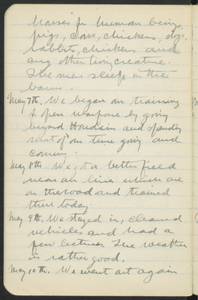 Nurses for human beings,
pigs, cows, chickens, dogs,
rabbits, chickens and
any other living creature.
The men sleep in the
barn.
May 7th. We began our training
of open warfare by going
beyond and spending
most of our time going and
coming.
May 8th. We to a better field
near an line which are
on the road and trained
there today
May 9th. We stayed in, cleaned
vehicles and had a
few lectures. The weather
is rather good.
May 10th. We went out again